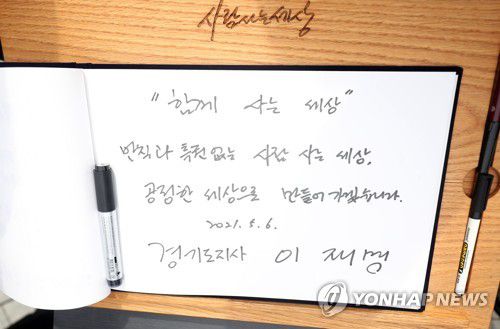 사람사는세상
"함께 사는 세상"
반칙과 특권 없는 사람 사는 세상,
공정한 세상으로 만들어 가겠습니다.
2021. 5. 6.
경기도지사 이 재 명
YONHAP NEWS